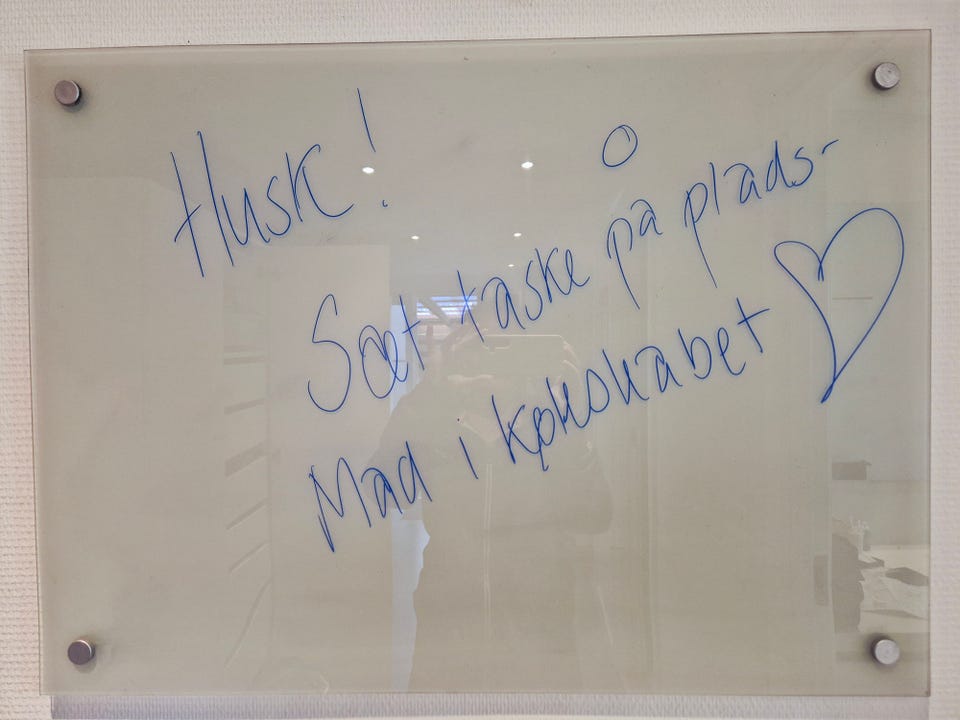 Husk!
Sæt taske på plads-
Mad i køleskabet